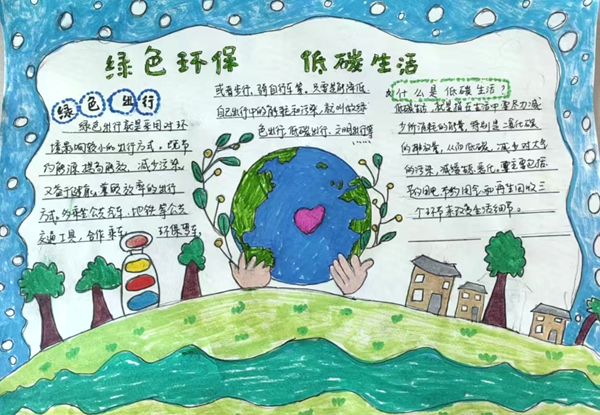 绿色环保 低碳生活
绿色出行
绿色出行就是采用对环
境影响较小的出行方式。既节
约能源、提高能效、减少污染、
又益于健康、兼顾效率的出行
方式。如乘坐公共汽车、地铁等公共
交通工具，合作乘车、环保驾车、
或者步行、骑自行车等，只要是能降低
自己出行中的能耗和污染，就叫做绿
色出行、低碳出行、文明出行等……
什么是低碳生活？
低碳生活，就是指在生活中要尽力减
少所消耗的能量，特别是二氧化碳
的排放量，从而低碳，减少对大气
的污染，减缓生态恶化。主要包括
节约用电、节约用气和再生回收三
个环节来改变生活细节。